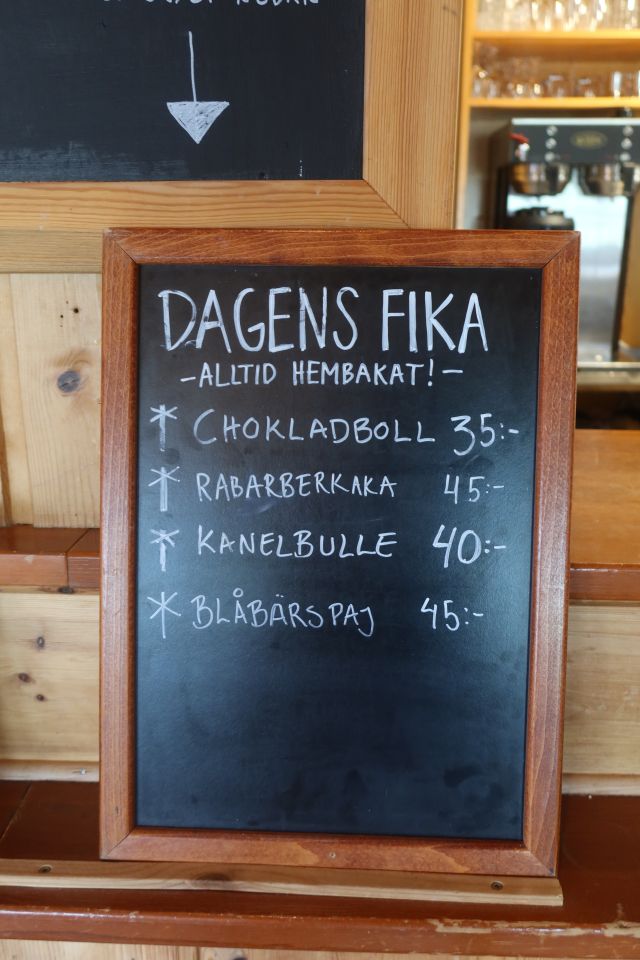 DAGENS FIKA
-ALLTID HEMBAKAT!-
* CHOKLADBOLL 35:-
* RABARBERKAKA 45:-
* KANELBULLE 40:-
* BLÅBÄRSPAJ 45:-